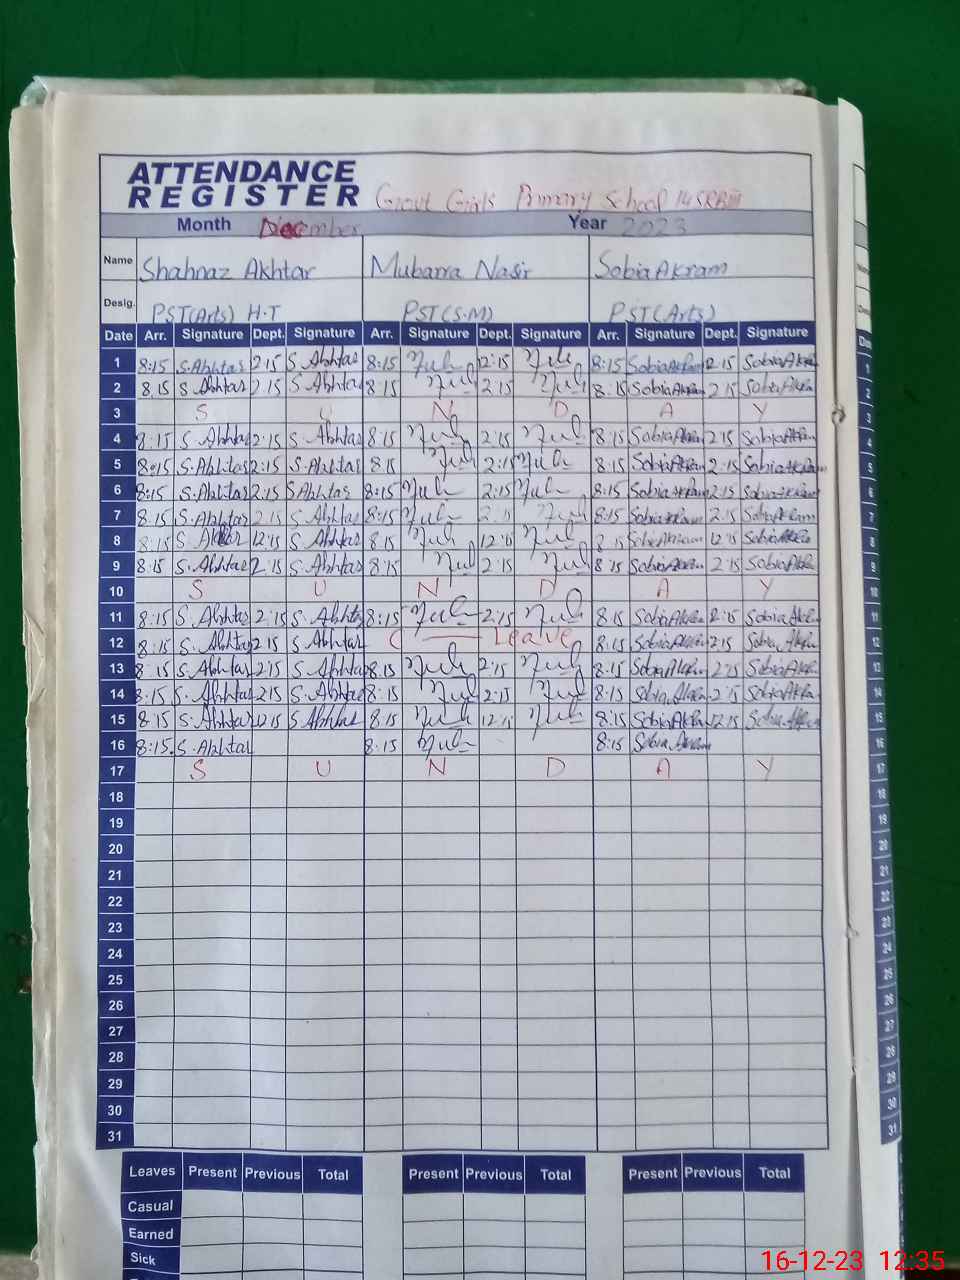 ATTENDANCE
REGISTER Govt Girls Primary School 14SRBIII
Month December Year 2023
Name Shahnaz Akhtar Mubarra Nasir Sobia Akram
Desig. PST(Arts) H.T PST(S.M) PST(Arts)
Date Arr. Signature Dept. Signature Arr. Signature Dept. Signature Arr. Signature Dept. Signature
1 8:15 S.Akhtar 12:15 S Akhtar 8:15 12:15 8:15 Sobia Akram 12:15 Sobia Akram
2 8:15 S.Akhtar 2:15 S Akhtar 8:15 2:15 8:15 Sobia Akram 2:15 Sobia Akram
3 S U N D A Y
4 8:15 S Akhtar 2:15 S Akhtar 8:15 2:15 8:15 Sobia Akram 2:15 Sobia Akram
5 8:15 S.Akhtar 2:15 S.Akhtar 8:15 2:15 8:15 Sobia Akram 2:15 Sobia Akram
6 8:15 S.Akhtar 2:15 S Akhtar 8:15 2:15 8:15 Sobia Akram 2:15 Sobia Akram
7 8:15 S.Akhtar 2:15 S Akhtar 8:15 2:15 8:15 Sobia Akram 2:15 Sobia Akram
8 8:15 S. Akhtar 12:15 S. Akhtar 8:15 12:15 8:15 Sobia Akram 12:15 Sobia Akram
9 8:15 S. Akhtar 2:15 S. Akhtar 8:15 2:15 8:15 Sobia Akram 2:15 Sobia Akram
10 S U N D A Y
11 8:15 S. Akhtar 2:15 S. Akhtar 8:15 2:15 8:15 Sobia Akram 2:15 Sobia Akram
12 8:15 S. Akhtar 2:15 S Akhtar C Leave 8:15 Sobia Akram 2:15 Sobia Akram
13 8:15 S. Akhtar 2:15 S Akhtar 8:15 2:15 8:15 Sobia Akram 2:15 Sobia Akram
14 8:15 S. Akhtar 2:15 S. Akhtar 8:15 2:15 8:15 Sobia Akram 2:15 Sobia Akram
15 8:15 S.Akhtar 12:15 S Akhtar 8:15 12:15 8:15 Sobia Akram 12:15 Sobia Akram
16 8:15 S.Akhtar 8:15 8:15 Sobia Akram
17 S U N D A Y
18
19
20
21
22
23
24
25
26
27
28
29
30
31
Leaves Present Previous Total Present Previous Total Present Previous Total
Casual
Earned
Sick
16-12-23 12:35